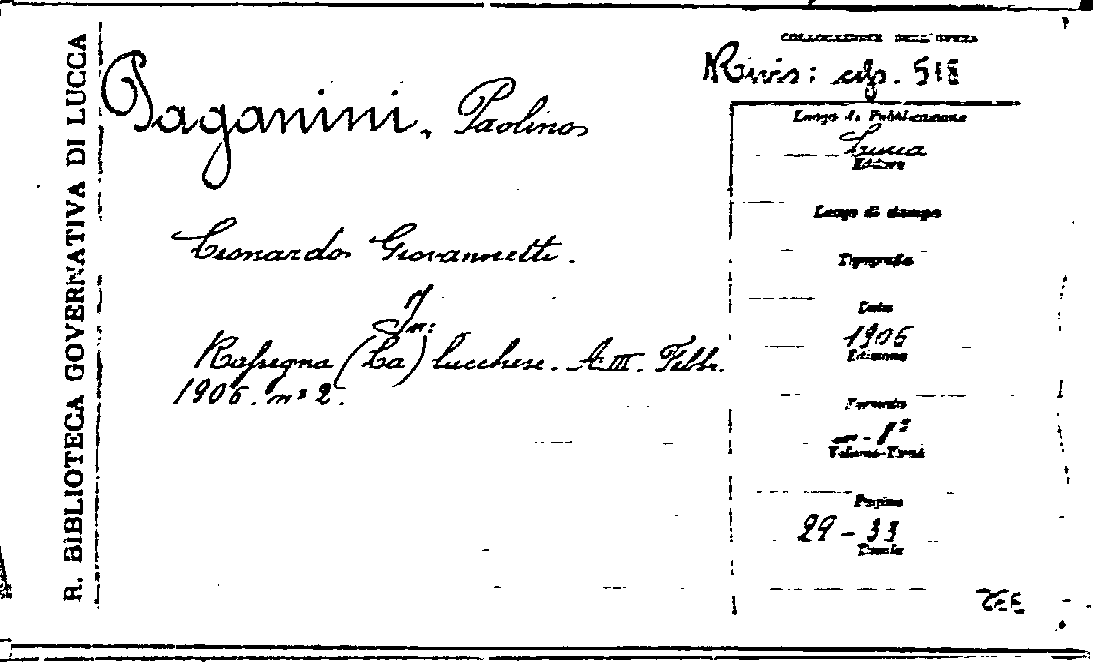 R. BIBLIOTECA GOVERNATIVA DI LUCCA
COLLOCAZIONE DELL'OPERA
Paganini, Paolino
Luogo di Pubblicazione
Lucca
Editore
Luogo di stampa
Tipografia
Data
1906
Edizione
Formato
Volume-Tomo
Pagine
29-33
Tavole
Leonardo Giovannetti.
In:
Rassegna (La) lucchese. A. III. Febbr.
1906. nº 2.